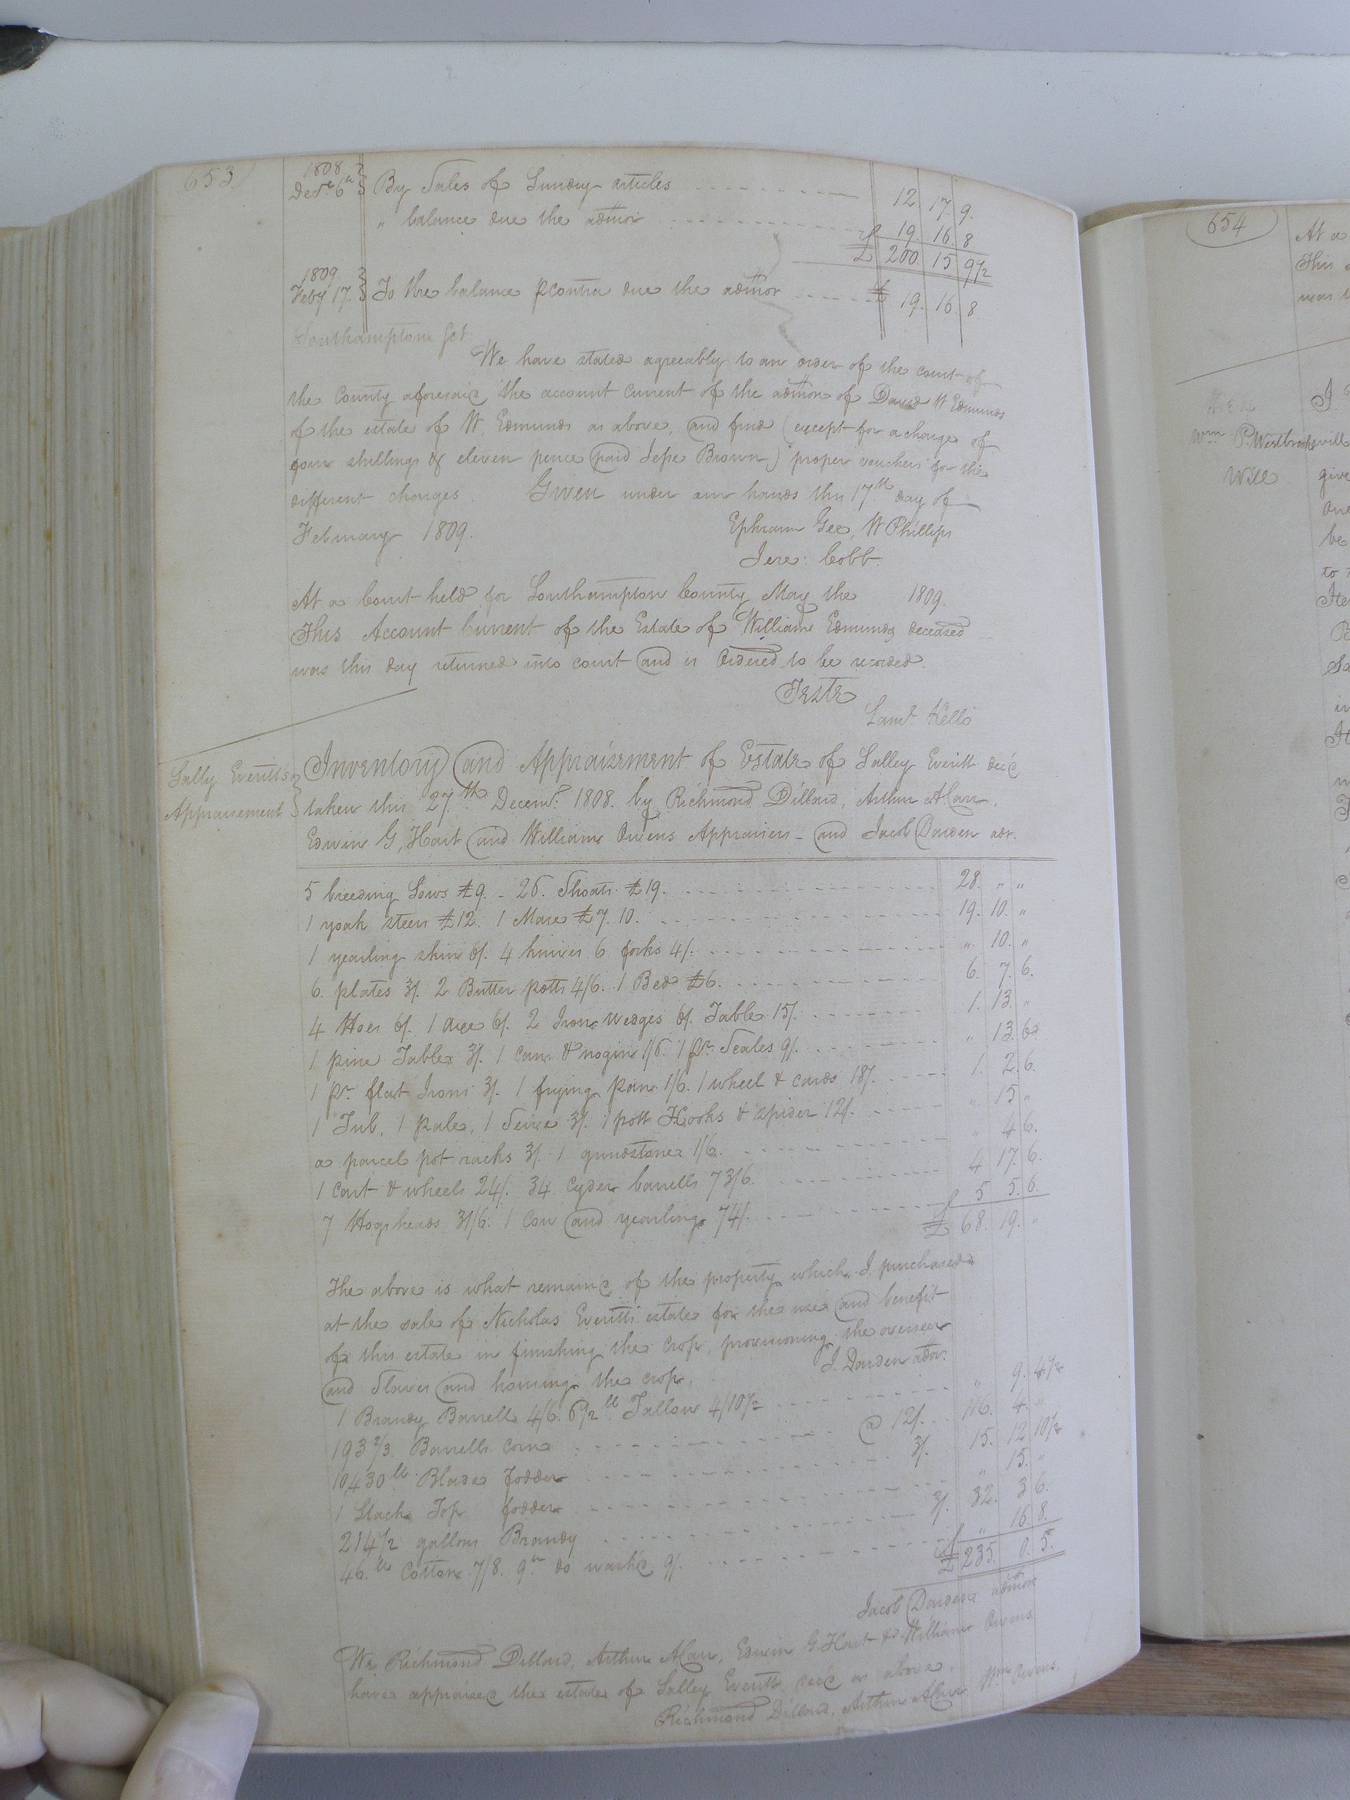 653
1808
Decr 6th } By Sales of Sundry articles 12. 17. 9.
" balance due the admor 19. 16. 8
£ 200 15 9 1/2
1809
Feby 17. } To the balance pcontra due the admor £ 19. 16. 8
Southampton Sct
We have stated agreeably to an order of the court of
the County aforesaid the account Current of the admon of David W Edmunds
of the estate of W. Edmunds as above, and find (except for a charge of
four shillings & eleven pence paid Jesse Brown) proper vouchers for the
different charges. Given under our hands this 17th day of
February 1809. Ephraim Gee, W Phillips
Jere: Cobb
At a Court held for Southampton County May the 1809.
This Account Current of the Estate of William Edmunds deceased
was this day returned into court and is Ordered to be recorded.
Teste
Saml. Kello
Sally Everitts
Appraisement
Inventory and Appraizement of Estate of Salley Everitt decd
taken this 27th Decemr. 1808. by Richmond Dillard, Arthur ACarr,
Edwin G, Hart and William Owens Appraisers - and Jacob Darden adr.
5 breeding Sows £9. - 26. Shoats £19. 28. " "
1 yoak steers £12. 1 Mare £7. 10. 19. 10. "
1 yearling skin 6/. 4 knives 6 forks 4/. ". 10. "
6 plates 3/. 2 Butter potts 4/6. 1 Bed £6. 6. 7. 6.
4 Hoes 6/. 1 axe 6/. 2 Iron wedges 6/. Table 15/. 1. 13. "
1 pine Table 3/. 1 can & nogin 1/6. 1 pr Scales 9/. " 13. 6.
1 pr flat Irons 3/. 1 frying pan 1/6. 1 wheel & cards 18/. 1. 2. 6.
1 Tub, 1 pale, 1 Seive 3/. 1 pott Hooks & spider 12/. " 15 "
a parcel pot racks 3/. 1 grindstone 1/6. " 4 6.
1 Cart & wheels 24/. 34 Cyder barrells 73/6. 4 17. 6.
7 Hogsheads 31/6. 1 Cow and yearling 74/. 5 5. 6.
£ 68. 19. "
The above is what remaind of the property which I purchased
at the sale of Nicholas Everitts estate for the use and benefit
of this estate in finishing the crop, provisioning the overseer
and Slaves and housing the crop. J. Darden admr.
1 Brandy Barrell 4/6. 6 1/2 lb Tallow 4/10 1/2 " 9. 4 1/2
193 2/3 Barrells corn @ 12/. 116. 4. "
10430 lb Blade fodder 3/. 15. 12 10 1/2
1 Stack Top fodder " 15. "
214 1/2 gallons Brandy 3/. 32. 3 6.
46. lb Cotton 7/8. 9 do 9/. " 16 8.
£ 235. 0. 5.
Jacob Darden admor
We Richmond Dillard, Arthur ACarr, Edwin G. Hart & William Owens
have appraised the estate of Salley Everitt decd as above.
Richmond Dillard, Arthur ACarr Wm Owens.
654
At a
This
was t
Wm P. Westbrooks
Will
I
will
give
One
be
to
Ite